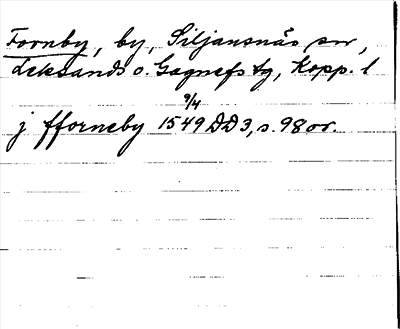 Fornby, by, Siljansnäs sn,
Leksands o. Gagnefs tg, Kopp. l
9/4
j fforneby 1549 DD3, s. 98 or.